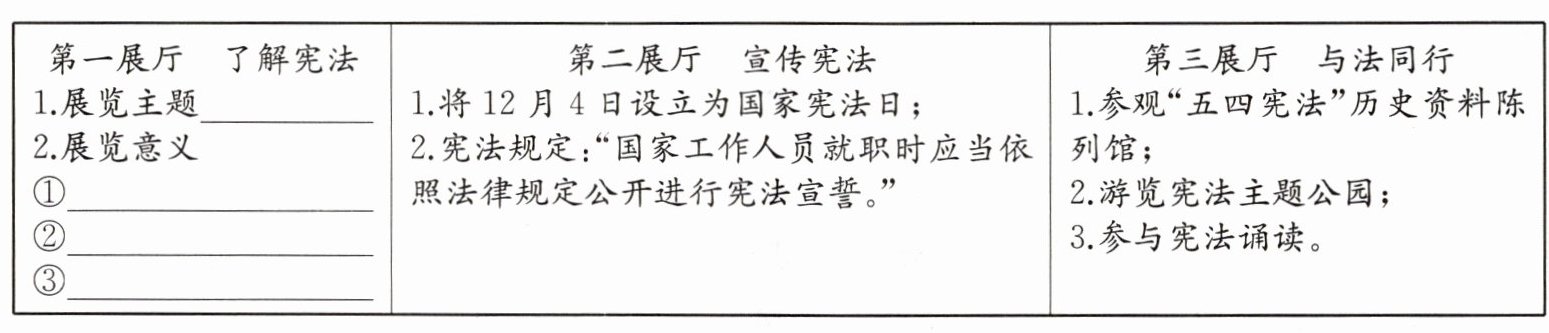 第一展厅 了解宪法
1.展览主题
2.展览意义
①
②
③
第二展厅 宣传宪法
1.将12月4日设立为国家宪法日；
2.宪法规定：“国家工作人员就职时应当依
照法律规定公开进行宪法宣誓。”
第三展厅 与法同行
1.参观“五四宪法”历史资料陈
列馆；
2.游览宪法主题公园；
3.参与宪法诵读。